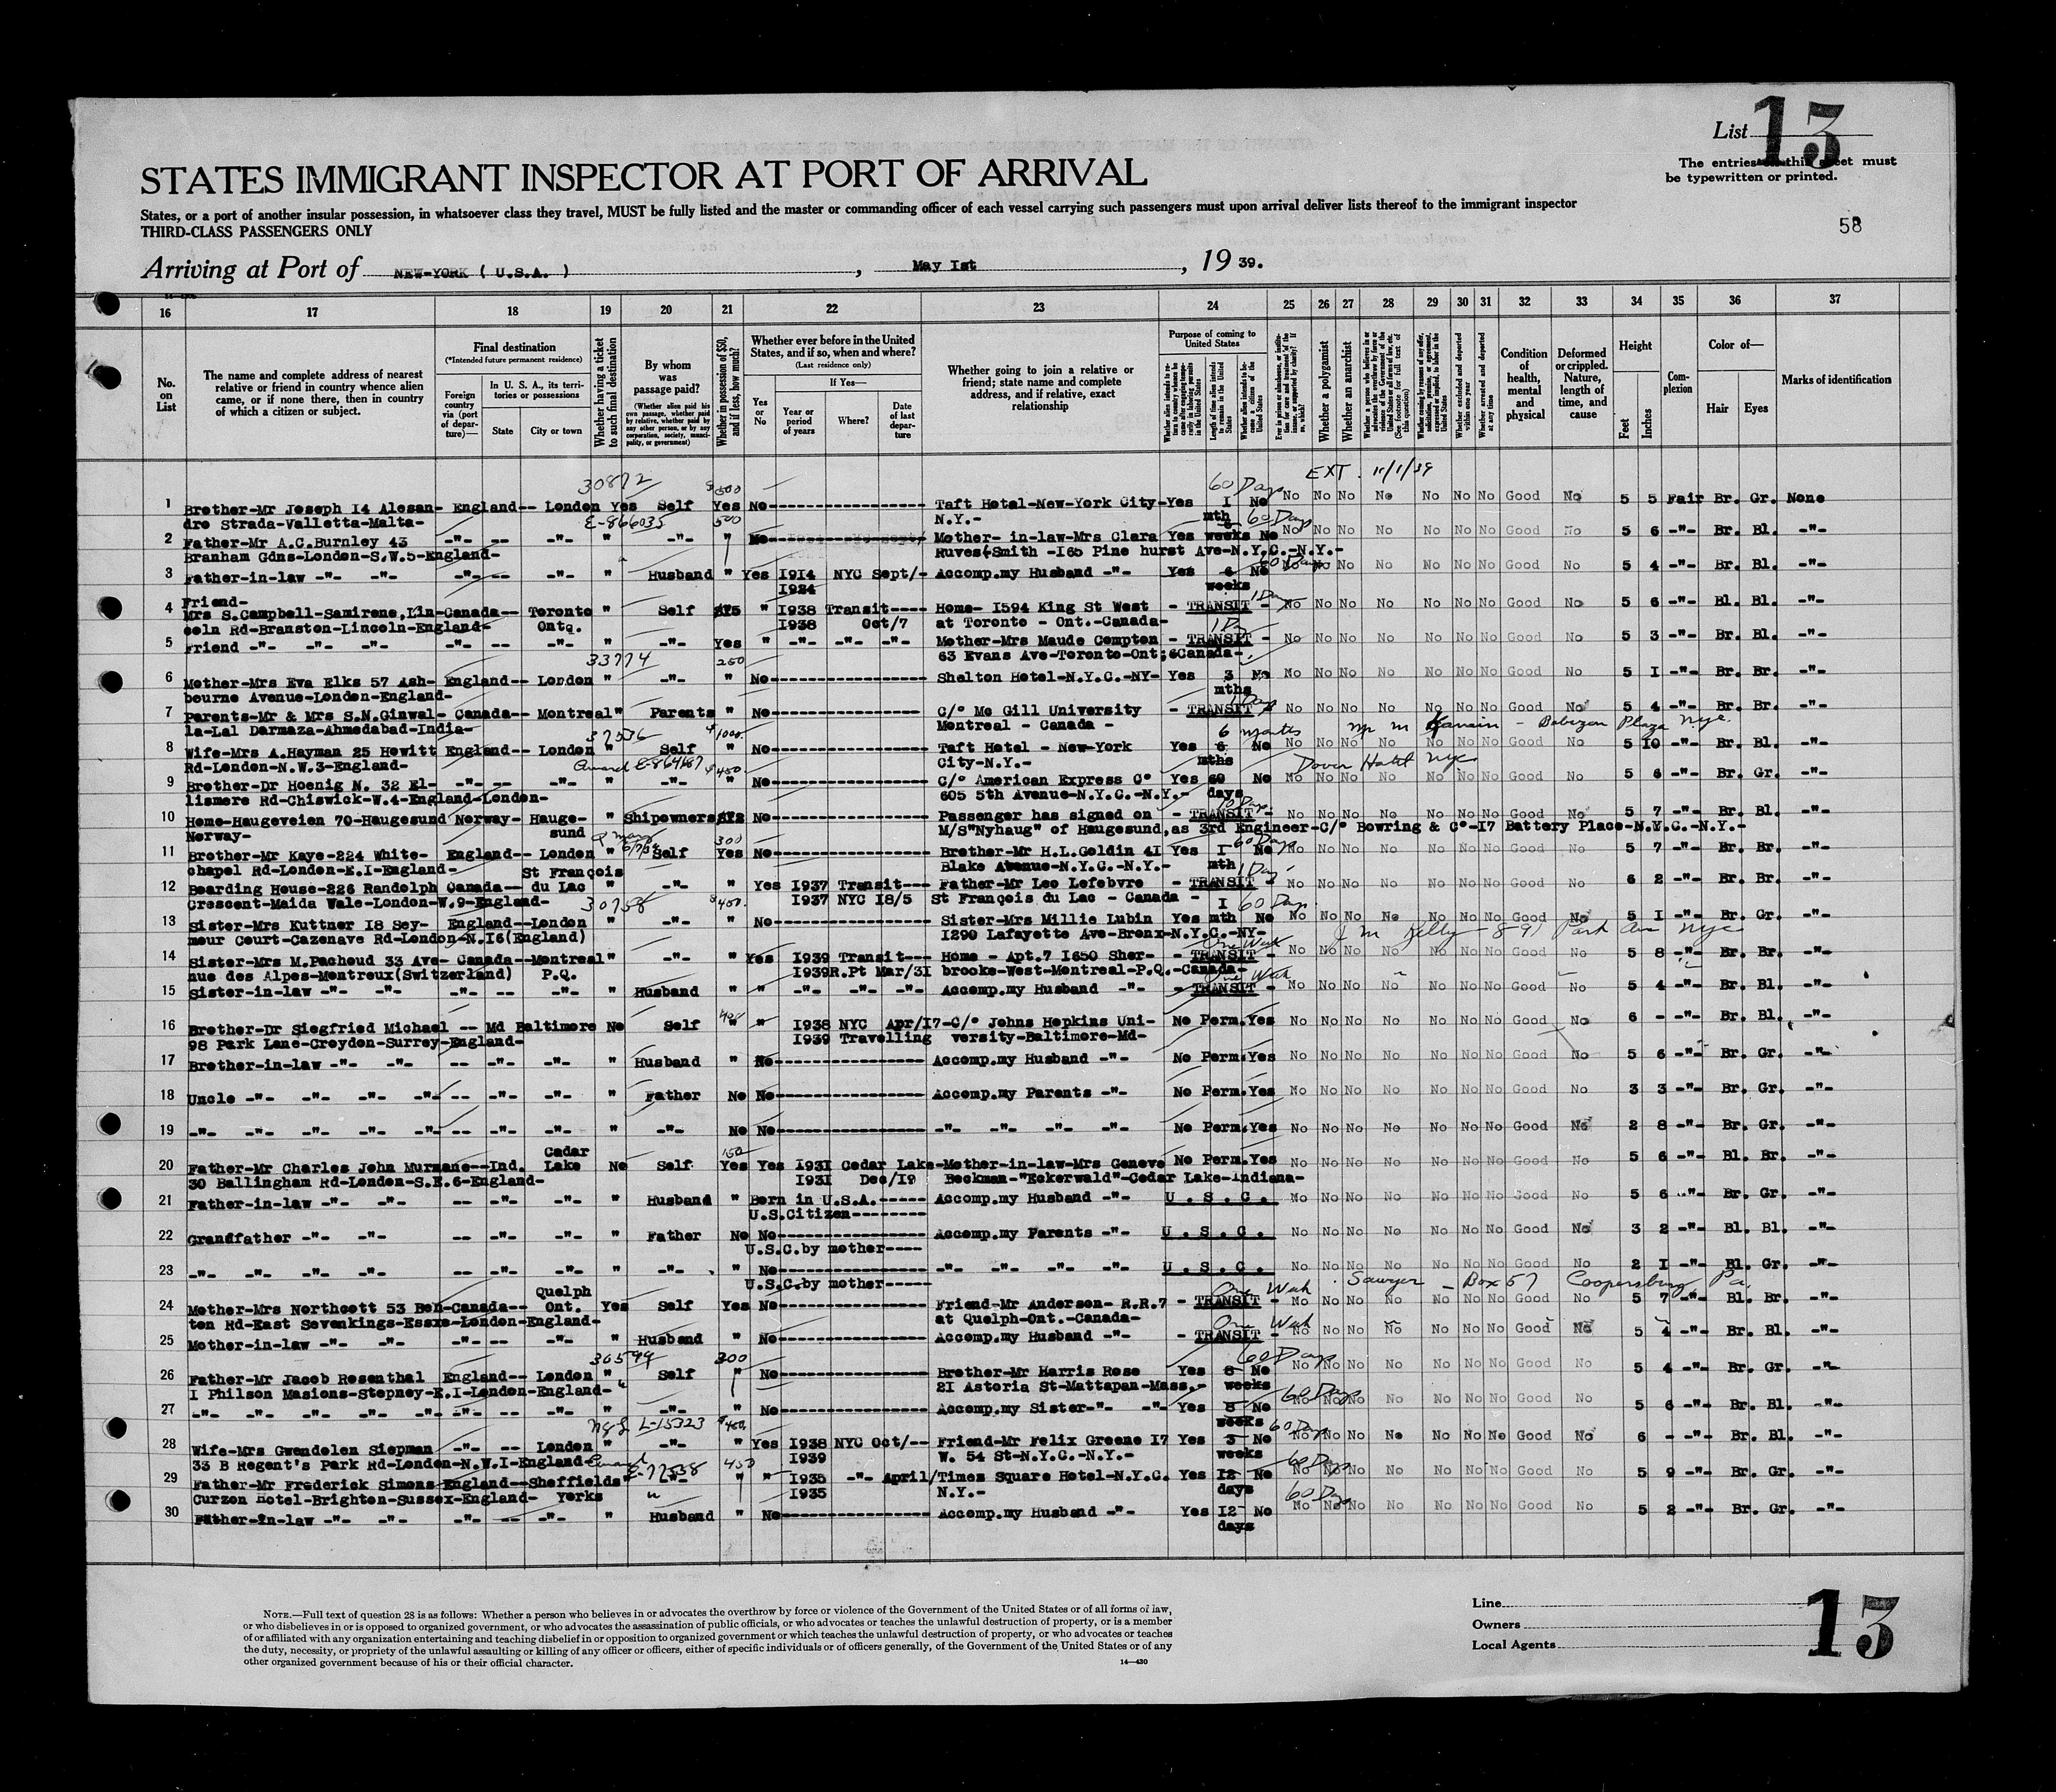 List 13
The entries on this sheet must
be typewritten or printed.
STATES IMMIGRANT INSPECTOR AT PORT OF ARRIVAL
States, or a port of another insular possession, in whatsoever class they travel, MUST be fully listed and the master or commanding officer of each vessel carrying such passengers must upon arrival deliver lists thereof to the immigrant inspector
THIRD-CLASS PASSENGERS ONLY
58
Arriving at Port of NEW-YORK ( U.S.A. ) , May Ist , 19 39.
16 17 18 19 20 21 22 23 24 25 26 27 28 29 30 31 32 33 34 35 36 37
No. on List
The name and complete address of nearest relative or friend in country whence alien came, or if none there, then in country of which a citizen or subject.
Final destination
(*Intended future permanent residence)
Foreign country via (port of departure)—
In U. S. A., its territories or possessions
State
City or town
Whether having a ticket to such final destination
By whom was passage paid?
(Whether alien paid his own passage, whether paid by relative, whether paid by any other person, or by any corporation, society, municipality, or government)
Whether in possession of $50, and if less, how much?
Whether ever before in the United States, and if so, when and where?
(Last residence only)
Yes or No
If Yes—
Year or period of years
Where?
Date of last departure
Whether going to join a relative or friend; state name and complete address, and if relative, exact relationship
Purpose of coming to United States
Length of time alien intends to remain in the United States
Whether a polygamist
Whether an anarchist
Condition of health, mental and physical
Deformed or crippled. Nature, length of time, and cause
Height
Feet
Inches
Complexion
Color of—
Hair
Eyes
Marks of identification
30872 $500 60 Days EXT. 11/1/39
1 Brother-Mr Joseph I4 Alesan- England-- London Yes Self Yes No Taft Hotel-New-York City-Yes I No No No No No No No No Good No 5 5 Fair Br. Gr. None
dro Strada-Valletta-Malta- E-866035 500 N.Y.- mth 60 Days
2 Father-Mr A.C.Burnley 43 -"- -- -"- " -"- " No Mother- in-law-Mrs Clara Yes weeks No No No No No No No No Good No 5 6 -"- Br. Bl. -"-
Branham Gdns-London-S.W.5-England- Ruves&Smith -I65 Pine hurst Ave-N.Y.C.-N.Y.-
3 Father-in-law -"- -"- -"- -- -"- " Husband " Yes I9I4 NYC Sept/- Accomp.my Husband -"- Yes 6 No No No No No No No No Good No 5 4 -"- Br. Bl. -"-
I924 weeks
4 Friend-
Mrs S.Campbell-Samirene,Lin-Canada-- Toronto " Self " I938 Transit---- Home- I594 King St West - TRANSIT - No No No No No No No Good No 5 6 -"- Bl. Bl. -"-
coln Rd-Branston-Lincoln-England- Ont. I938 Oct/7 at Toronto - Ont.-Canada-
5 Friend -"- -"- -"- -"- -- -"- " -"- Yes " -"- -"- -"- Mother-Mrs Maude Compton - TRANSIT - No No No No No No No Good No 5 3 -"- Br. Bl. -"-
33774 250 63 Evans Ave-Toronto-Ont;Canada-
6 Mother-Mrs Eva Elks 57 Ash- England-- London " -"- " No Shelton Hotel-N.Y.C.-NY- Yes 3 No No No No No No No No Good No 5 I -"- Br. Br. -"-
bourne Avenue-London-England- mths
7 Parents-Mr & Mrs S.N.Ginwal- Canada-- Montreal " Parents " No C/° Mc Gill University - TRANSIT - No No No No No No No Good No 5 4 -"- Br. Br. -"-
la-Lal Darmaza-Ahmedabad-India- $1000 Montreal - Canada - 6 months
8 Wife-Mrs A.Hayman 25 Hewitt England-- London " Self " No Taft Hotel - New-York Yes 6 No No No No No No No No Good No 5 I0 -"- Br. Bl. -"-
Rd-London-N.W.3-England- $450 City-N.Y.- mths Dover Hotel NYC
9 Brother-Dr Hoenig N. 32 El- -"- -- -"- -"- " No C/° American Express C° Yes 60 No No No No No No No No Good No 5 6 -"- Br. Gr. -"-
lismere Rd-Chiswick-W.4-England-London- 605 5th Avenue-N.Y.C.-N.Y.- days
10 Home-Haugeveien 70-Haugesund Norway- Hauge- " Shipowners No Passenger has signed on - TRANSIT - No No No No No No No Good No 5 7 -"- Br. Bl. -"-
Norway- sund M/S"Nyhaug" of Haugesund,as 3rd Engineer-C/° Bowring & C°-I7 Battery Place-N.Y.C.-N.Y.-
300 60 Days
11 Brother-Mr Kaye-224 White- England-- London " Self Yes No Brother-Mr H.L.Goldin 4I Yes I No No No No No No No No Good No 5 7 -"- Br. Br. -"-
chapel Rd-London-E.I-England- St François Blake Avenue-N.Y.C.-N.Y.- mth 1 Day
12 Boarding House-226 Randolph Canada-- du Lac " -"- " Yes I937 Transit--- Father-Mr Leo Lefebvre - TRANSIT - No No No No No No No Good No 6 2 -"- Br. Br. -"-
Crescent-Maida Vale-London-W.9-England- 30758 $400. I937 NYC I8/5 St François du Lac - Canada - 60 Days
13 Sister-Mrs Kuttner I8 Sey- England--London " -"- " No Sister-Mrs Millie Lubin Yes I mth No No No No No No No No Good No 5 I -"- Br. Gr. -"-
mour Court-Cazenave Rd-London-N.I6(England) I290 Lafayette Ave-Bronx-N.Y.C.-NY-
14 Sister-Mrs M.Pachoud 33 Ave- Canada--Montreal " -"- " Yes I939 Transit--- Home - Apt.7 I650 Sher- - TRANSIT - No No No No No No No Good No 5 8 -"- Br. Br. -"-
nue des Alpes-Montreux(Switzerland) P.Q. I939R.Pt Mar/3I brooke-West-Montreal-P.Q.-Canada- One Week
15 Sister-in-law -"- -"- -"- -- -"- " Husband " " -"- -"- -"- Accomp.my Husband -"- - TRANSIT - No No No No No No No Good No 5 4 -"- Br. Bl. -"-
16 Brother-Dr Siegfried Michael -- Md Baltimore No Self " " I938 NYC Apr/I7-C/° Johns Hopkins Uni- No Perm.Yes No No No No No No No Good No 6 - -"- Br. Bl. -"-
98 Park Lane-Croydon-Surrey-England- I939 Travelling versity-Baltimore-Md-
17 Brother-in-law -"- -"- -- -"- -"- " Husband " No Accomp.my Husband -"- No Perm.Yes No No No No No No No Good No 5 6 -"- Br. Gr. -"-
18 Uncle -"- -"- -"- -"- -- -"- -"- " Father No No Accomp.my Parents -"- No Perm.Yes No No No No No No No Good No 3 3 -"- Br. Gr. -"-
19 -"- -"- -"- -"- -"- -- -"- -"- " -"- No No -"- -"- -"- -"- -"- No Perm.Yes No No No No No No No Good No 2 8 -"- Br. Gr. -"-
Cedar 150
20 Father-Mr Charles John Murnane--Ind. Lake No Self Yes Yes I93I Cedar Lake-Mother-in-law-Mrs Geneve No Perm.Yes No No No No No No No Good No 5 6 -"- Bl. Br. -"-
30 Ballingham Rd-London-S.E.6-England- I93I Dec/I9 Beckman-"Eckerwald"-Cedar Lake-Indiana-
21 Father-in-law -"- -"- -- -"- -"- " Husband " Born in U.S.A.----- Accomp.my Husband -"- U . S . C . No No No No No No No Good No 5 6 -"- Br. Gr. -"-
U.S.Citizen--------
22 Grandfather -"- -"- -- -"- -"- " Father No No Accomp.my Parents -"- U . S . C . No No No No No No No Good No 3 2 -"- Bl. Bl. -"-
U.S.C.by mother----
23 -"- -"- -"- -"- -"- -- -"- -"- " -"- " No -"- -"- -"- -"- -"- U . S . C . No No No No No No No Good No 2 I -"- Bl. Gr. -"-
U.S.C.by mother-----
Quelph One Week Sawyer - Box 57 Coopersburg Pa.
24 Mother-Mrs Northcott 53 Ben-Canada-- Ont. Yes Self Yes No Friend-Mr Anderson- R.R.7 - TRANSIT - No No No No No No No Good No 5 7 -"- Bl. Br. -"-
ton Rd-East Sevenkings-Essex-London-England- at Quelph-Ont.-Canada- One Week
25 Mother-in-law -"- -"- -"- -- -"- " Husband " No Accomp.my Husband -"- - TRANSIT - No No No No No No No Good No 5 4 -"- Br. Bl. -"-
36599 300 60 Days
26 Father-Mr Jacob Rosenthal England-- London " Self " No Brother-Mr Harris Rose Yes 8 No No No No No No No No Good No 5 4 -"- Br. Gr. -"-
I Philson Masions-Stepney-E.I-London-England- 2I Astoria St-Mattapan-Mass.- weeks 60 Days
27 -"- -"- -"- -"- -"- -"- -- -"- " -"- No Accomp.my Sister-"- -"- Yes 8 No No No No No No No No Good No 5 6 -"- Br. Bl. -"-
L-15323 $400 weeks 60 Days
28 Wife-Mrs Gwendolen Siepman -"- -- London " -"- " Yes I938 NYC Oct/-- Friend-Mr Felix Greene I7 Yes 3 No No No No No No No No Good No 6 - -"- Br. Bl. -"-
33 B Regent's Park Rd-London-N.W.I-England- 450 I939 W. 54 St-N.Y.C.-N.Y.- weeks 60 Days
29 Father-Mr Frederick Simons England--Sheffields " -"- " " I935 -"- April/Times Square Hotel-N.Y.C. Yes I2 No No No No No No No No Good No 5 9 -"- Br. Gr. -"-
Curzon Hotel-Brighton-Sussex-England- Yorks I935 N.Y.- days 60 Days
30 Father-in-law -"- -"- -"- -- -"- " Husband " No Accomp.my Husband -"- Yes I2 No No No No No No No No Good No 5 2 -"- Br. Gr. -"-
days
NOTE.—Full text of question 28 is as follows: Whether a person who believes in or advocates the overthrow by force or violence of the Government of the United States or of all forms of law,
or who disbelieves in or is opposed to organized government, or who advocates the assassination of public officials, or who advocates or teaches the unlawful destruction of property, or is a member
of or affiliated with any organization entertaining and teaching disbelief in or opposition to organized government or which teaches the unlawful destruction of property, or who advocates or teaches
the duty, necessity, or propriety of the unlawful assaulting or killing of any officer or officers, either of specific individuals or of officers generally, of the Government of the United States or of any
other organized government because of his or their official character.
14—430
Line
Owners
Local Agents
13